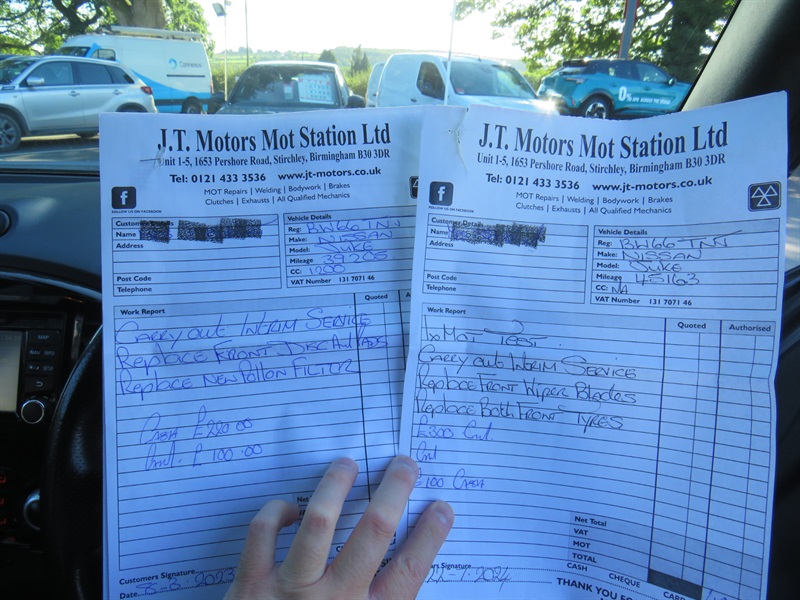 Connexus
0% APR ACROSS THE RANGE
J.T. Motors Mot Station Ltd
Unit 1-5, 1653 Pershore Road, Stirchley, Birmingham B30 3DR
Tel: 0121 433 3536 www.jt-motors.co.uk
MOT Repairs | Welding | Bodywork | Brakes
Clutches | Exhausts | All Qualified Mechanics
f
FOLLOW US ON FACEBOOK
Customer Details
Name
Address
Post Code
Telephone
Vehicle Details
Reg: BW66 TNV
Make: NISSAN
Model: JUKE
Mileage 39205
CC: 1200
VAT Number 131 7071 46
Work Report
Quoted
CARRY OUT INTRIM SERVICE
REPLACE FRONT DISC AND PADS
REPLACE NEW POLLON FILTER
CASH £220.00
£100.00
Customers Signature
Date 8-8-2023
J.T. Motors Mot Station Ltd
Unit 1-5, 1653 Pershore Road, Stirchley, Birmingham B30 3DR
Tel: 0121 433 3536 www.jt-motors.co.uk
MOT Repairs | Welding | Bodywork | Brakes
Clutches | Exhausts | All Qualified Mechanics
f
FOLLOW US ON FACEBOOK
Customer Details
Name
Address
Post Code
Telephone
Vehicle Details
Reg: BW66 TNV
Make: NISSAN
Model: JUKE
Mileage 45163
CC: NA
VAT Number 131 7071 46
Work Report
Quoted
Authorised
Mot Test.
CARRY OUT INTRIM SERVICE
Replace Front Wiper Blades
Replace Both Front TYRES
£300
£100 CASH
Net Total
VAT
MOT
TOTAL
CASH CHEQUE CARD
Signature
-7-2024
THANK YOU FO